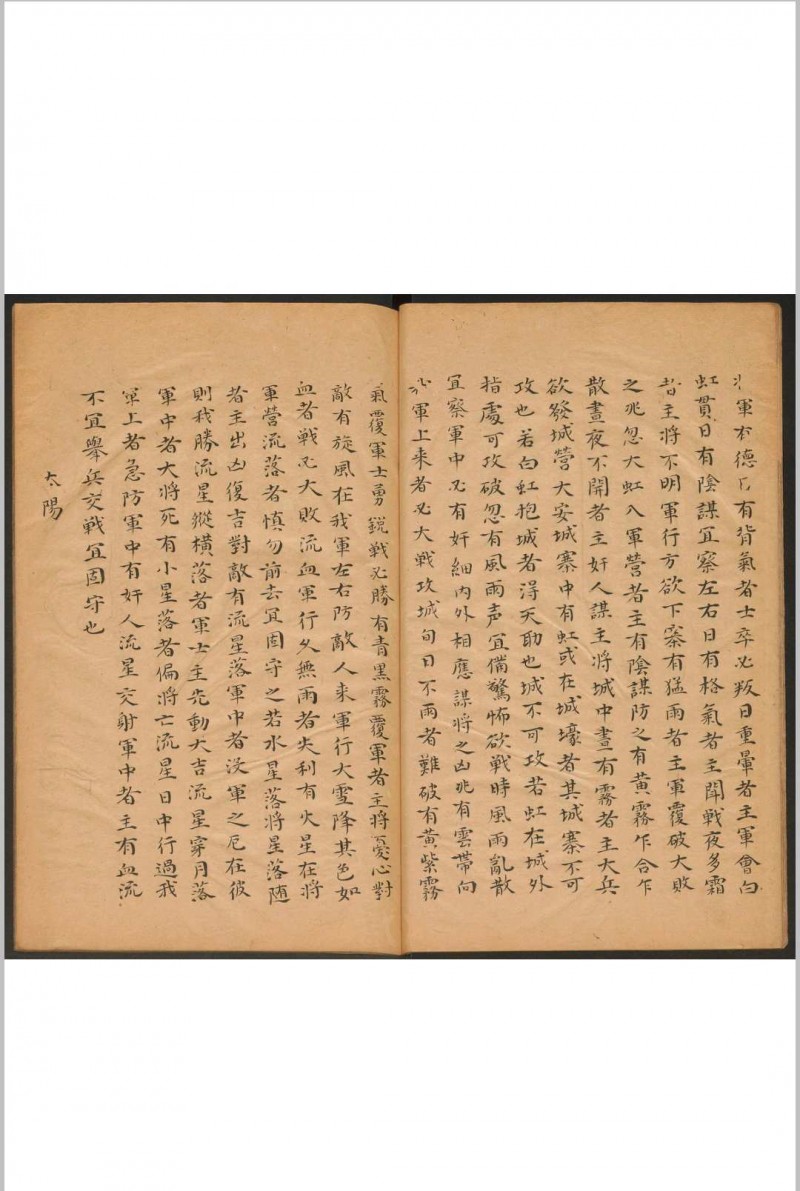 軍有德日有背氣者士卒必叛日重暈者主軍會白
虹貫日有陰謀宜察左右日有格氣者主鬪戰夜多霜
者主將不明軍行方欲下寨有猛雨者主軍覆破大敗
之兆忽大虹入軍營者主有陰謀防之有黃霧乍合乍
散晝夜不開者主奸人謀主將城中晝有霧者主大兵
欲發城營大安城寨中有虹或在城壕者其城寨不可
攻也若白虹抱城者淂天助也城不可攻若虹在城外
指處可攻破忽有風雨声宜備驚怖欲戰時風雨亂散
宜察軍中必有奸細內外相應謀將之凶兆有雲帶向
必軍上来者必大戰攻城旬日不雨者難破有黃紫霧
氣覆軍士勇銳戰必勝有青黑霧覆軍者主將憂心對
敵有旋風在我軍左右防敵人来軍行大雪降其色如
血者戰必大敗流血軍行久無雨者失利有火星在將
軍營流落者慎勿前去宜固守之若水星落將星落随
者主出凶復吉對敵有流星落軍中者沒軍之厄在彼
則我勝流星縱橫落者軍士主先動大吉流星穿月落
軍中者大將死有小星落者偏將亡流星日中行過我
軍上者急防軍中有奸人流星交射軍中者主有血流
不宜舉兵交戰宜固守也
太陽